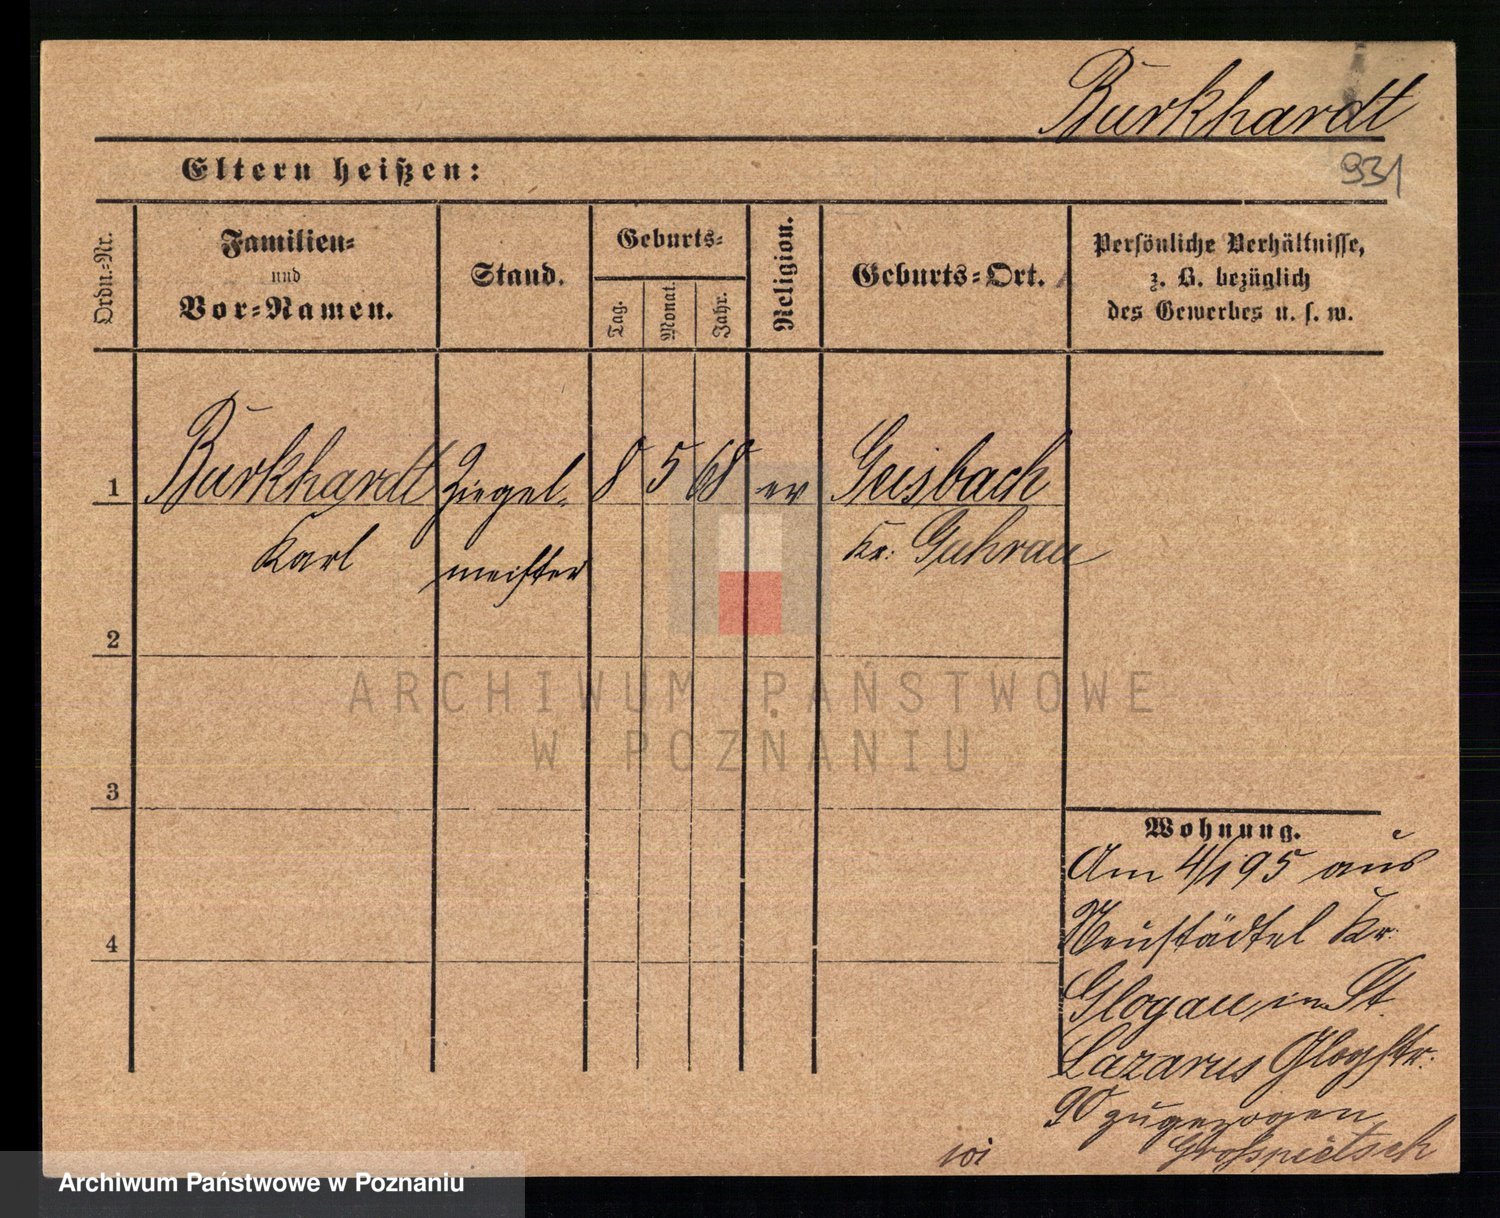 Burkhardt
931
Eltern heißen:
Ordn.=Nr.
Familien=
und
Vor=Namen.
Stand.
Geburts=
Tag.
Monat.
Jahr.
Religion.
Geburts=Ort.
Persönliche Verhältnisse,
z. B. bezüglich
des Gewerbes u. s. w.
1
Burkhardt
Ziegel-
8
5
68
ev
Geisbach
Karl
meister
Kr. Guhrau
2
ARCHIWUM PAŃSTWOWE
W POZNANIU
3
Wohnung.
Am 4/1 95 aus
Neustädtel Kr.
Glogau in St.
Lazarus Glogstr.
90 zugezogen
Grosspietsch
4
Archiwum Państwowe w Poznaniu